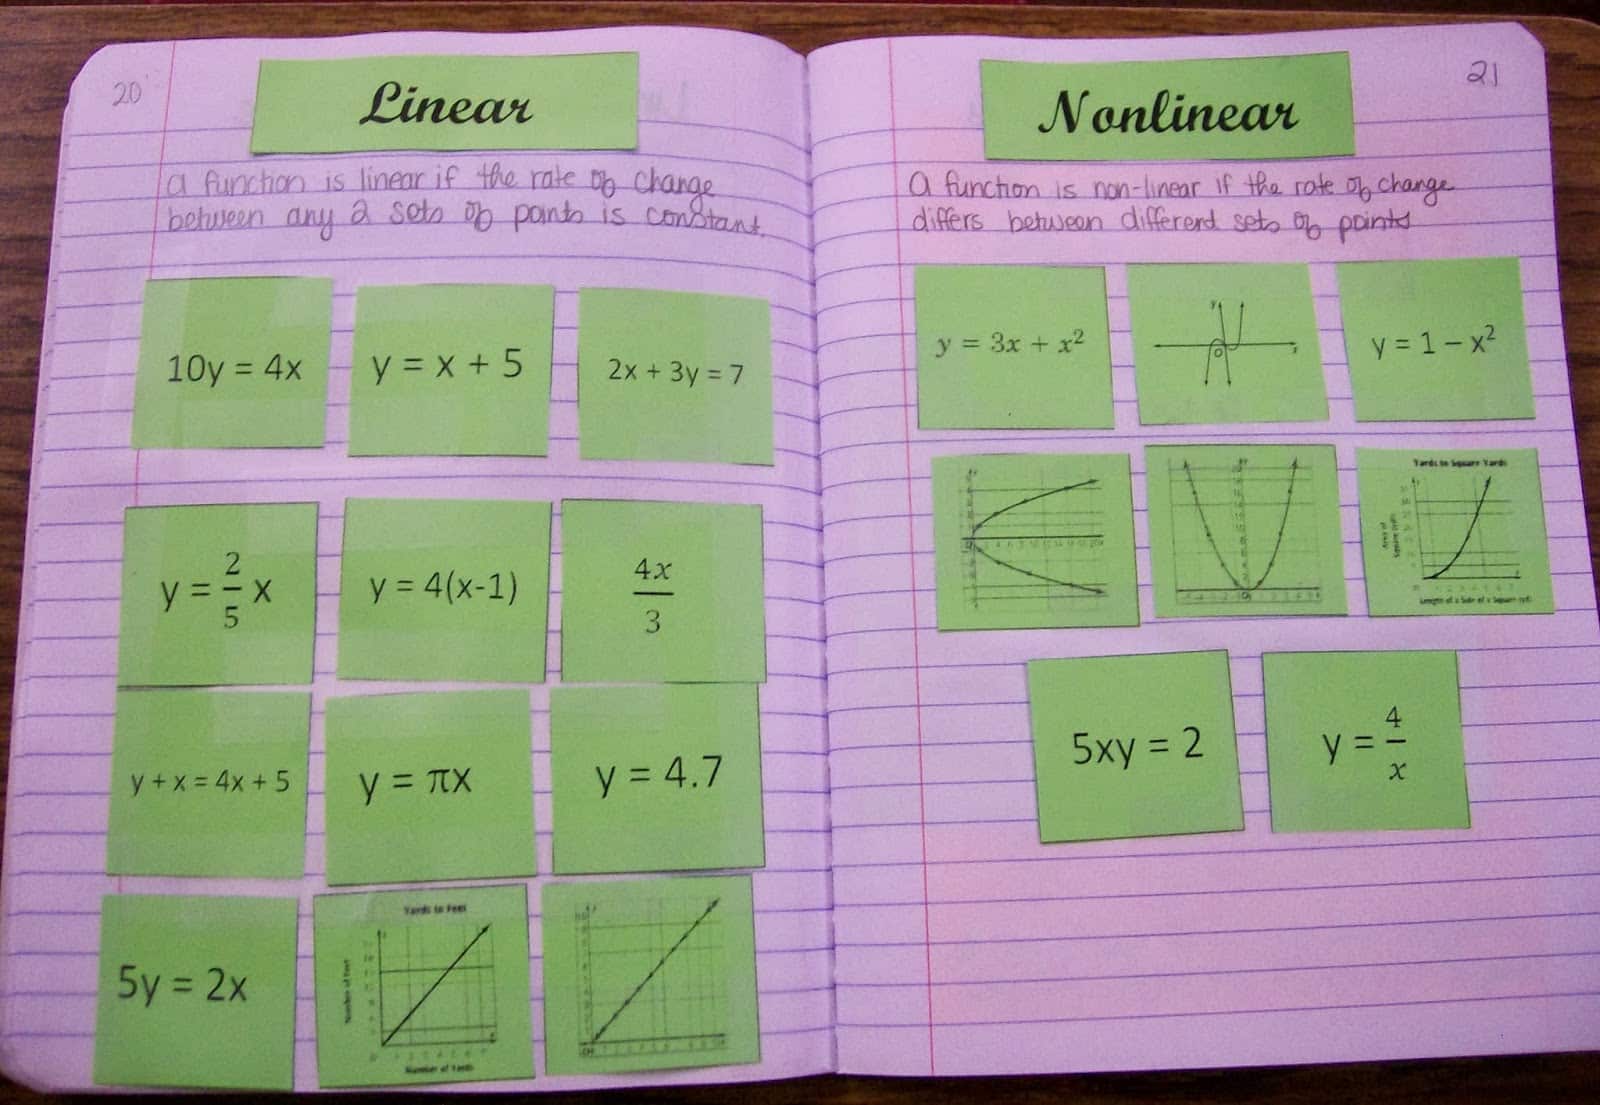 20
Linear
a function is linear if the rate of change
between any 2 sets of points is constant.
10y = 4x
y = x + 5
2x + 3y = 7
y = 2/5 x
y = 4(x-1)
4x/3
y + x = 4x + 5
y = πx
y = 4.7
5y = 2x
Yards to Feet
Number of Feet
Number of Yards
21
Nonlinear
a function is non-linear if the rate of change
differs between different sets of points
y = 3x + x²
y
O
x
y = 1 – x²
Yards to Square Yards
Area of
Square (yd)
Length of a Side of a Square (yd)
5xy = 2
y = 4/x